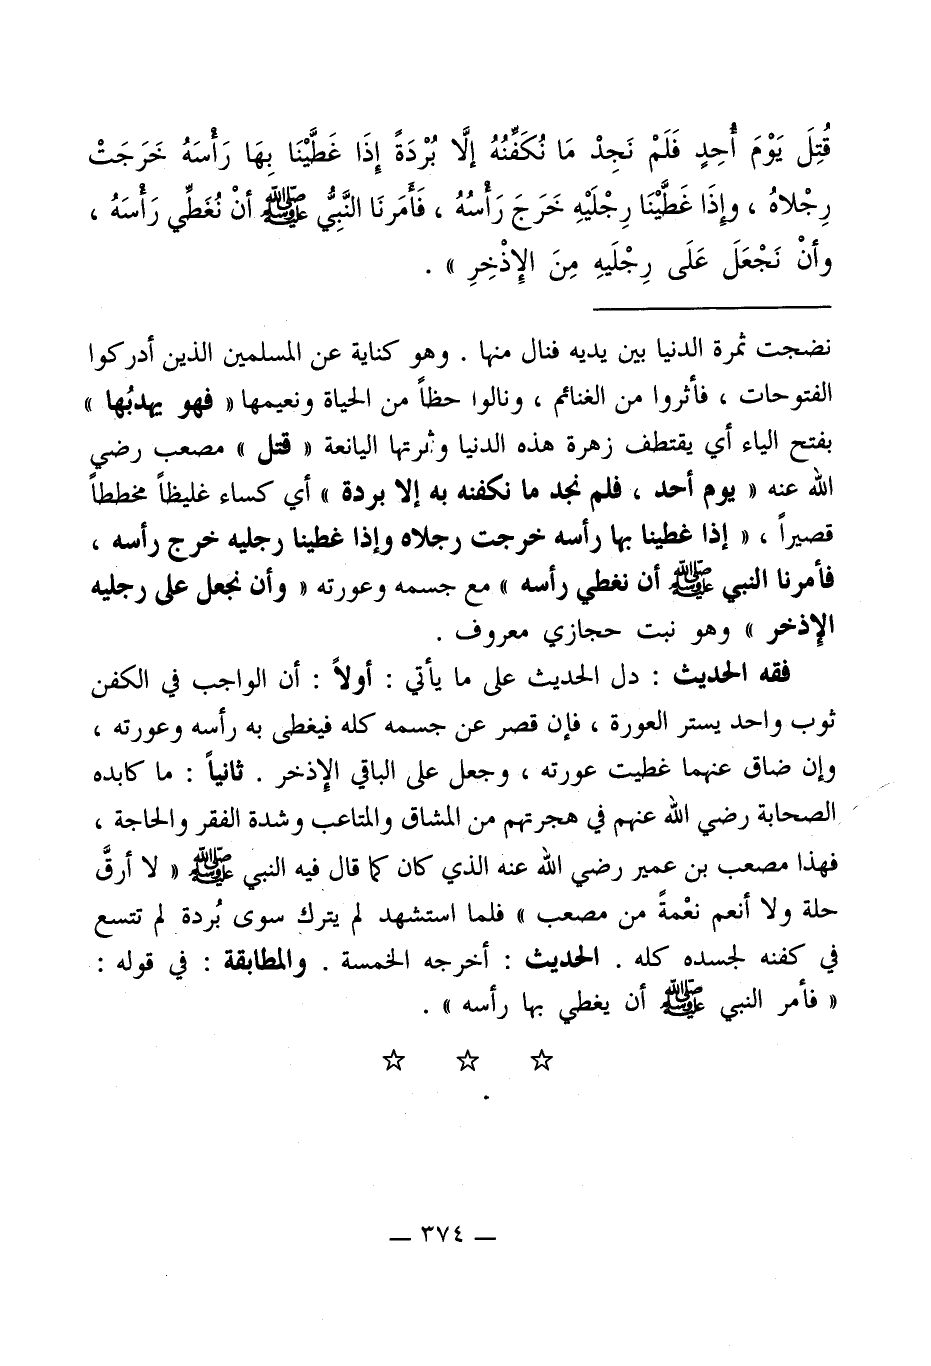 قُتِلَ يَوْمَ أُحِدٍ فَلَمْ نَجِدْ مَا نُكَفِّنُهُ إلَّا بُرْدَةً إِذَا غَطَّيْنَا بِهَا رَأْسَهُ خَرَجَتْ
رِجْلاهُ ، وإِذَا غَطَّيْنَا رِجْلَيْهِ خَرَجَ رَأْسُهُ ، فَأَمَرَنَا النَّبِيُّ ﷺ أنْ نُغَطِّي رَأْسَهُ ،
وأنْ نَجْعَلَ عَلَى رِجْلَيهِ مِنَ الإِذْخِرِ » .
نضجت ثمرة الدنيا بين يديه فنال منها . وهو كناية عن المسلمين الذين أدركوا
الفتوحات ، فأثروا من الغنائم ، ونالوا حظاً من الحياة ونعيمها « فهو يهدبُها »
بفتح الياء أي يقتطف زهرة هذه الدنيا وثمرتها اليانعة « قتل » مصعب رضي
الله عنه « يوم أحد ، فلم نجد ما نكفنه به إلا بردة » أي كساء غليظاً مخططاً
قصيراً ، « إذا غطينا بها رأسه خرجت رجلاه وإذا غطينا رجليه خرج رأسه ،
فأمرنا النبي ﷺ أن نغطي رأسه » مع جسمه وعورته « وأن نجعل على رجليه
الإذخر » وهو نبت حجازي معروف .
فقه الحديث : دل الحديث على ما يأتي : أولاً : أن الواجب في الكفن
ثوب واحد يستر العورة ، فإن قصر عن جسمه كله فيغطى به رأسه وعورته ،
وإن ضاق عنهما غطيت عورته ، وجعل على الباقي الإذخر . ثانياً : ما كابده
الصحابة رضي الله عنهم في هجرتهم من المشاق والمتاعب وشدة الفقر والحاجة ،
فهذا مصعب بن عمير رضي الله عنه الذي كان كما قال فيه النبي ﷺ « لا أرقَّ
حلة ولا أنعم نعْمةً من مصعب » فلما استشهد لم يترك سوى بُردة لم تتسع
في كفنه لجسده كله . الحديث : أخرجه الخمسة . والمطابقة : في قوله :
« فأمر النبي ﷺ أن يغطي بها رأسه » .
☆ ☆ ☆
— ٣٧٤ —